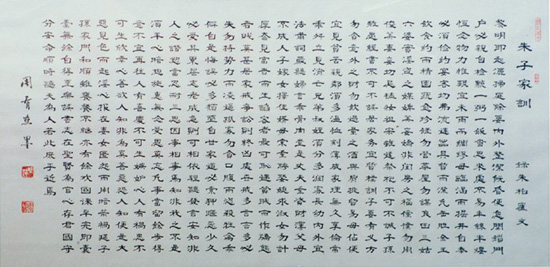 朱子家訓
錄朱柏廬文
黎明即起洒掃庭除要內外整潔既昏便息關鎖門
户必親自檢點一粥一飯當思來處不易半絲半縷
恆念物力維艱宜未雨而綢繆毋臨渴而掘井自奉
必須儉約宴客切勿留連器具質而潔瓦缶勝金玉
飲食約而精園蔬愈珍饈勿營華屋勿謀良田三姑
六婆實淫盜之媒婢美妾嬌非閨房之福僮僕勿用
俊美妻妾切忌艷妝祖宗雖遠祭祀不可不誠子孫
雖愚經書不可不讀居家務宜質樸訓子要有義方
勿貪意外之財勿飲過量之酒與肩挑貿易毋佔便
宜見貧苦親鄰須多溫恤刻薄成家理無久享倫常
乖舛立見消亡兄弟叔姪須分多潤寡長幼內外宜
法肅辭嚴聽婦言乖骨肉豈是丈夫重資財薄父母
不成人子嫁女擇佳婿毋索重聘娶媳求淑女勿計
厚奩見富貴而生諂容者最可恥遇貧窮而作驕態
者賤莫甚居家戒爭訟訟則終凶處世戒多言言多
必失勿恃勢力而凌逼孤寡勿貪口腹而恣殺牲禽乖
僻自是悔誤必多頹惰自甘家道難成狎昵惡少久
必受其累屈志老成急則可相依輕聽發言安知非
人之譖愬當忍耐三思因事相爭焉知非我之不是
須平心暗想施惠無念受恩莫忘凡事當留餘地得
意不宜再往人有喜慶不可生妒嫉心人有禍患不
可生欣幸心善欲人見不是真善惡恐人知便是大
惡見色而起淫心報在妻女匿怨而用暗箭禍延子
孫家門和順雖饔飧不繼亦有餘歡國課早完即囊
橐無餘自得至樂讀書志在聖賢為官心存君國守
分安命順時聽天為人若此庶乎近焉
周